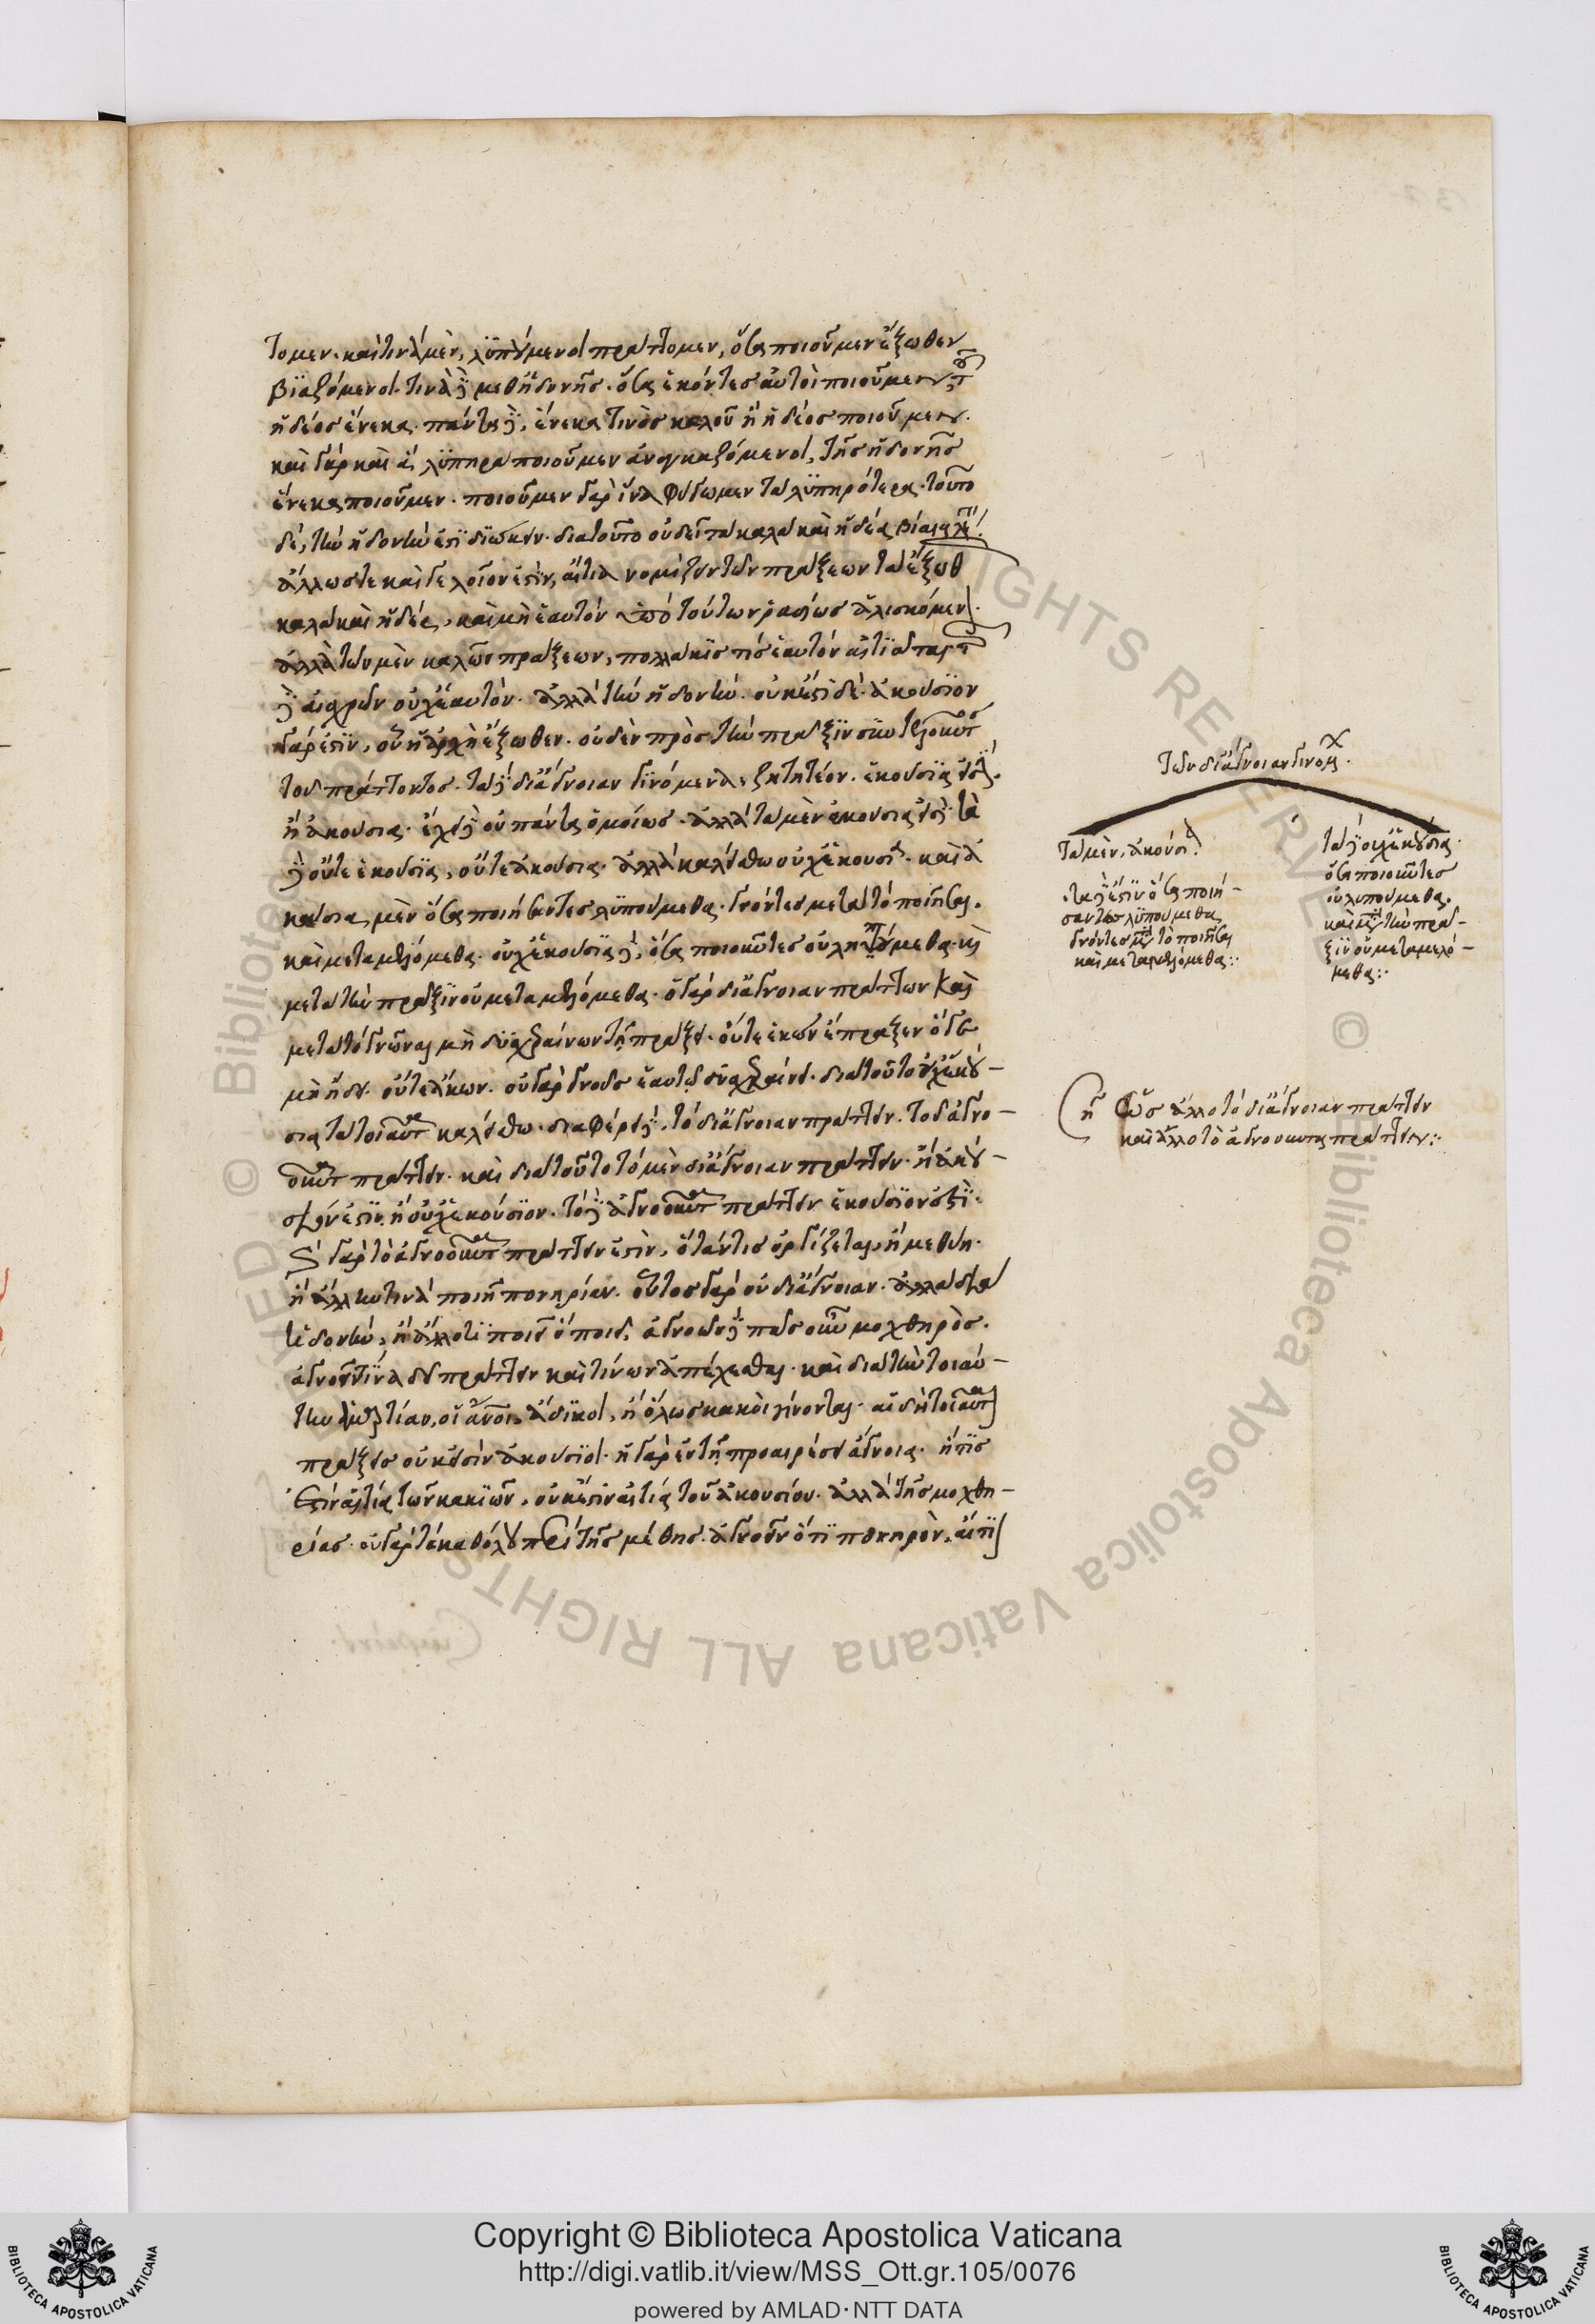 τομεν· καὶ τινὰ μὲν, λυπούμενοι πράττομεν, ὅσα ποιοῦμεν ἔξωθεν
βιαζόμενοι· τινὰ δὲ μεθ' ἡδονῆς· ὅσα ἑκόντες αὐτοὶ ποιοῦμεν τοῦ
ἡδέος ἕνεκα· πάντα δὲ, ἕνεκα τινὸς καλοῦ ἢ ἡδέος ποιοῦμεν·
καὶ γὰρ καὶ ἃ λυπηρὰ ποιοῦμεν ἀναγκαζόμενοι, τῆς ἡδονῆς
ἕνεκα ποιοῦμεν· ποιοῦμεν γὰρ ἵνα φύγωμεν τὰ λυπηρότερα· τοῦτο
δὲ, τὴν ἡδονὴν ἐστὶ διώκειν· διατοῦτο οὐδὲ τὰ καλὰ καὶ ἡδέα βίαια
ἄλλως τε καὶ γελοῖον ἐστὶν, αἴτια νομίζειν τῶν πράξεων τὰ ἔξωθ
καλὰ καὶ ἡδέα, καὶ μὴ ἑαυτὸν ὑπὸ τούτων ῥαδίως ἁλισκόμεν
ἀλλὰ τῶν μὲν καλῶν πράξεων, πολλάκις τίς ἑαυτὸν αἰτιᾶται τ
δὲ αἰσχρῶν οὐχ ἑαυτὸν· ἀλλὰ τὴν ἡδονὴν· οὐκ ἔστι δὲ· ἀκούσιον
γάρ ἐστιν, οὗ ἡ ἀρχὴ ἔξωθεν· οὐδὲν πρὸς τὴν πρᾶξιν συντελοῦντος
τοῦ πράττοντος· τὰ δὲ δι' ἄγνοιαν γινόμενα, ζητητέον· ἑκούσια ἐστὶ
ἢ ἀκούσια· ἔχει δὲ οὐ πάντα ὁμοίως· ἀλλὰ τὰ μὲν ἀκούσια ἐστὶ· τὰ
δὲ οὔτε ἑκούσια, οὔτε ἀκούσια· ἀλλὰ καλείσθω οὐχ ἑκούσια· καὶ ἀ
κούσια, μὲν ὅσα ποιήσαντες λυπούμεθα· γνόντες μετὰ τὸ ποιῆσαι·
καὶ μεταμελόμεθα· οὐχ ἑκούσια δὲ, ὅσα ποιοῦντες οὐ λυπούμεθα· καὶ
μετὰ τὴν πρᾶξιν οὐ μεταμελόμεθα· ὁ γὰρ δι' ἄγνοιαν πράττων καὶ
μετὰ τὸ γνῶναι μὴ δυσχεραίνων τῇ πράξει· οὔτε ἑκὼν ἔπραξεν ὅ γε
μὴ ᾔδει· οὔτε ἄκων· οὐ γὰρ γνοὺς ἑαυτῷ δυσχεραίνει· διατοῦτο οὐχ ἑκού-
σια τὰ τοιαῦτα καλείσθω· διαφέρει δὲ, τὸ δι' ἄγνοιαν πράττειν· τοῦ ἀγνο-
οῦντα πράττειν· καὶ διατοῦτο τὸ μὲν δι' ἄγνοιαν πράττειν· ἢ ἀκού-
σιόν ἐστιν ἢ οὐχ ἑκούσιον· τὸ δὲ ἀγνοοῦντα πράττειν ἑκούσιον ἐστὶ·
γὰρ τὸ ἀγνοοῦντα πράττειν ἐστὶν, ὅτάν τις ὀργίζεται, ἢ μεθύῃ·
ἢ ἄλλην τινὰ ποιῇ πονηρίαν· οὗτος γὰρ οὐ δι' ἄγνοιαν· ἀλλὰ διὰ
τὲ ἡδονὴν, ἢ ἄλλο τι ποιεῖ ὃ ποιεῖ, ἀγνοεῖ δὲ πᾶς οὖν μοχθηρὸς·
ἀγνοεῖ τίνα δεῖ πράττειν καὶ τίνων ἀπέχεσθαι· καὶ διὰ τὴν τοιαύ-
την ἁμαρτίαν, οἱ ἄνοι ἄδικοι, ἢ ὅλως κακοὶ γίνονται· αἱ δὴ τοιαῦται
πράξεις οὐκ εἰσὶν ἀκούσιοι· ἡ γὰρ ἐν τῇ προαιρέσει ἄγνοια· ἥτις
ἐστὶν αἰτία τῶν κακιῶν, οὐκ ἔστιν αἰτία τοῦ ἀκουσίου· ἀλλὰ τῆς μοχθη-
ρίας· οὐ γάρ τι καθόλου περὶ τῆς μέθης· ἀγνοεῖν ὅτι πονηρὸν, αἴτι
Τῶν δι' ἄγνοιαν γινομένων
Τὰ μὲν, ἀκούσια
τὰ δὲ οὐχ ἑκούσια·
τὰ δέ ἐστιν ὅσα ποιή-
σαντες λυπούμεθα
γνόντες μετὰ τὸ ποιῆσαι
καὶ μεταμελόμεθα:
ὅσα ποιοῦντες
οὐ λυπούμεθα·
καὶ μετὰ τὴν πρᾶ-
ξιν οὐ μεταμελό-
μεθα:
πῶς ἄλλο τὸ δι' ἄγνοιαν πράττειν
καὶ ἄλλο τὸ ἀγνοοῦντα πράττειν:
Copyright © Biblioteca Apostolica Vaticana
http://digi.vatlib.it/view/MSS_Ott.gr.105/0076
powered by AMLAD·NTT DATA
BIBLIOTECA APOSTOLICA VATICANA
BIBLIOTECA APOSTOLICA VATICANA
© Biblioteca Apostolica Vaticana ALL RIGHTS RESERVED